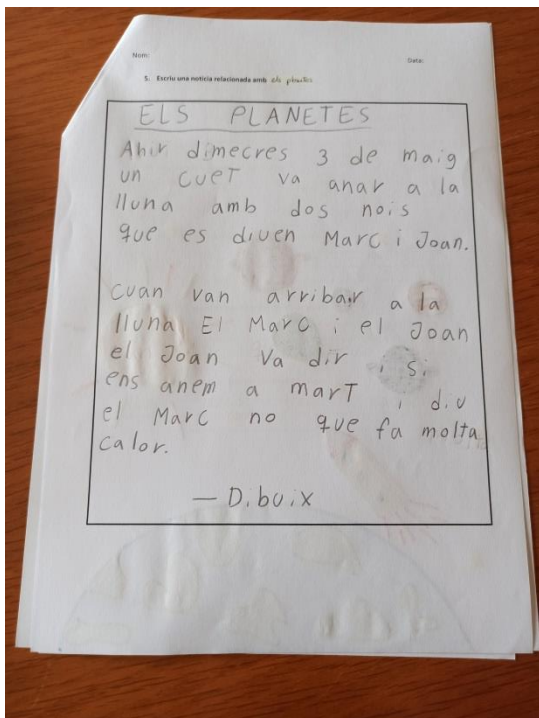 Nom:
Data:
5. Escriu una notícia relacionada amb els planetes
ELS PLANETES
Ahir dimecres 3 de maig
un cuet va anar a la
lluna amb dos nois
que es diuen Marc i Joan.
cuan van arribar a la
lluna El Marc i el Joan
el Joan va dir i si
ens anem a marT i diu
el Marc no que fa molta
calor.
— Dibuix